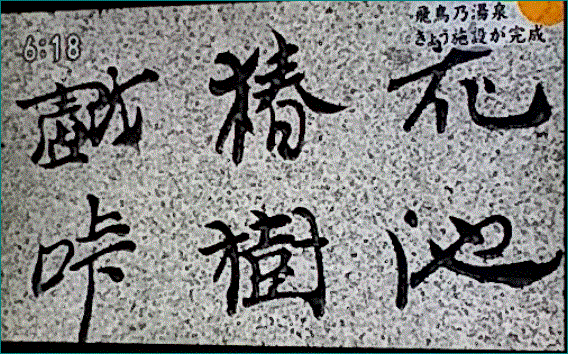 6:18
飛鳥乃湯泉
きょう施設が完成
花池
椿樹